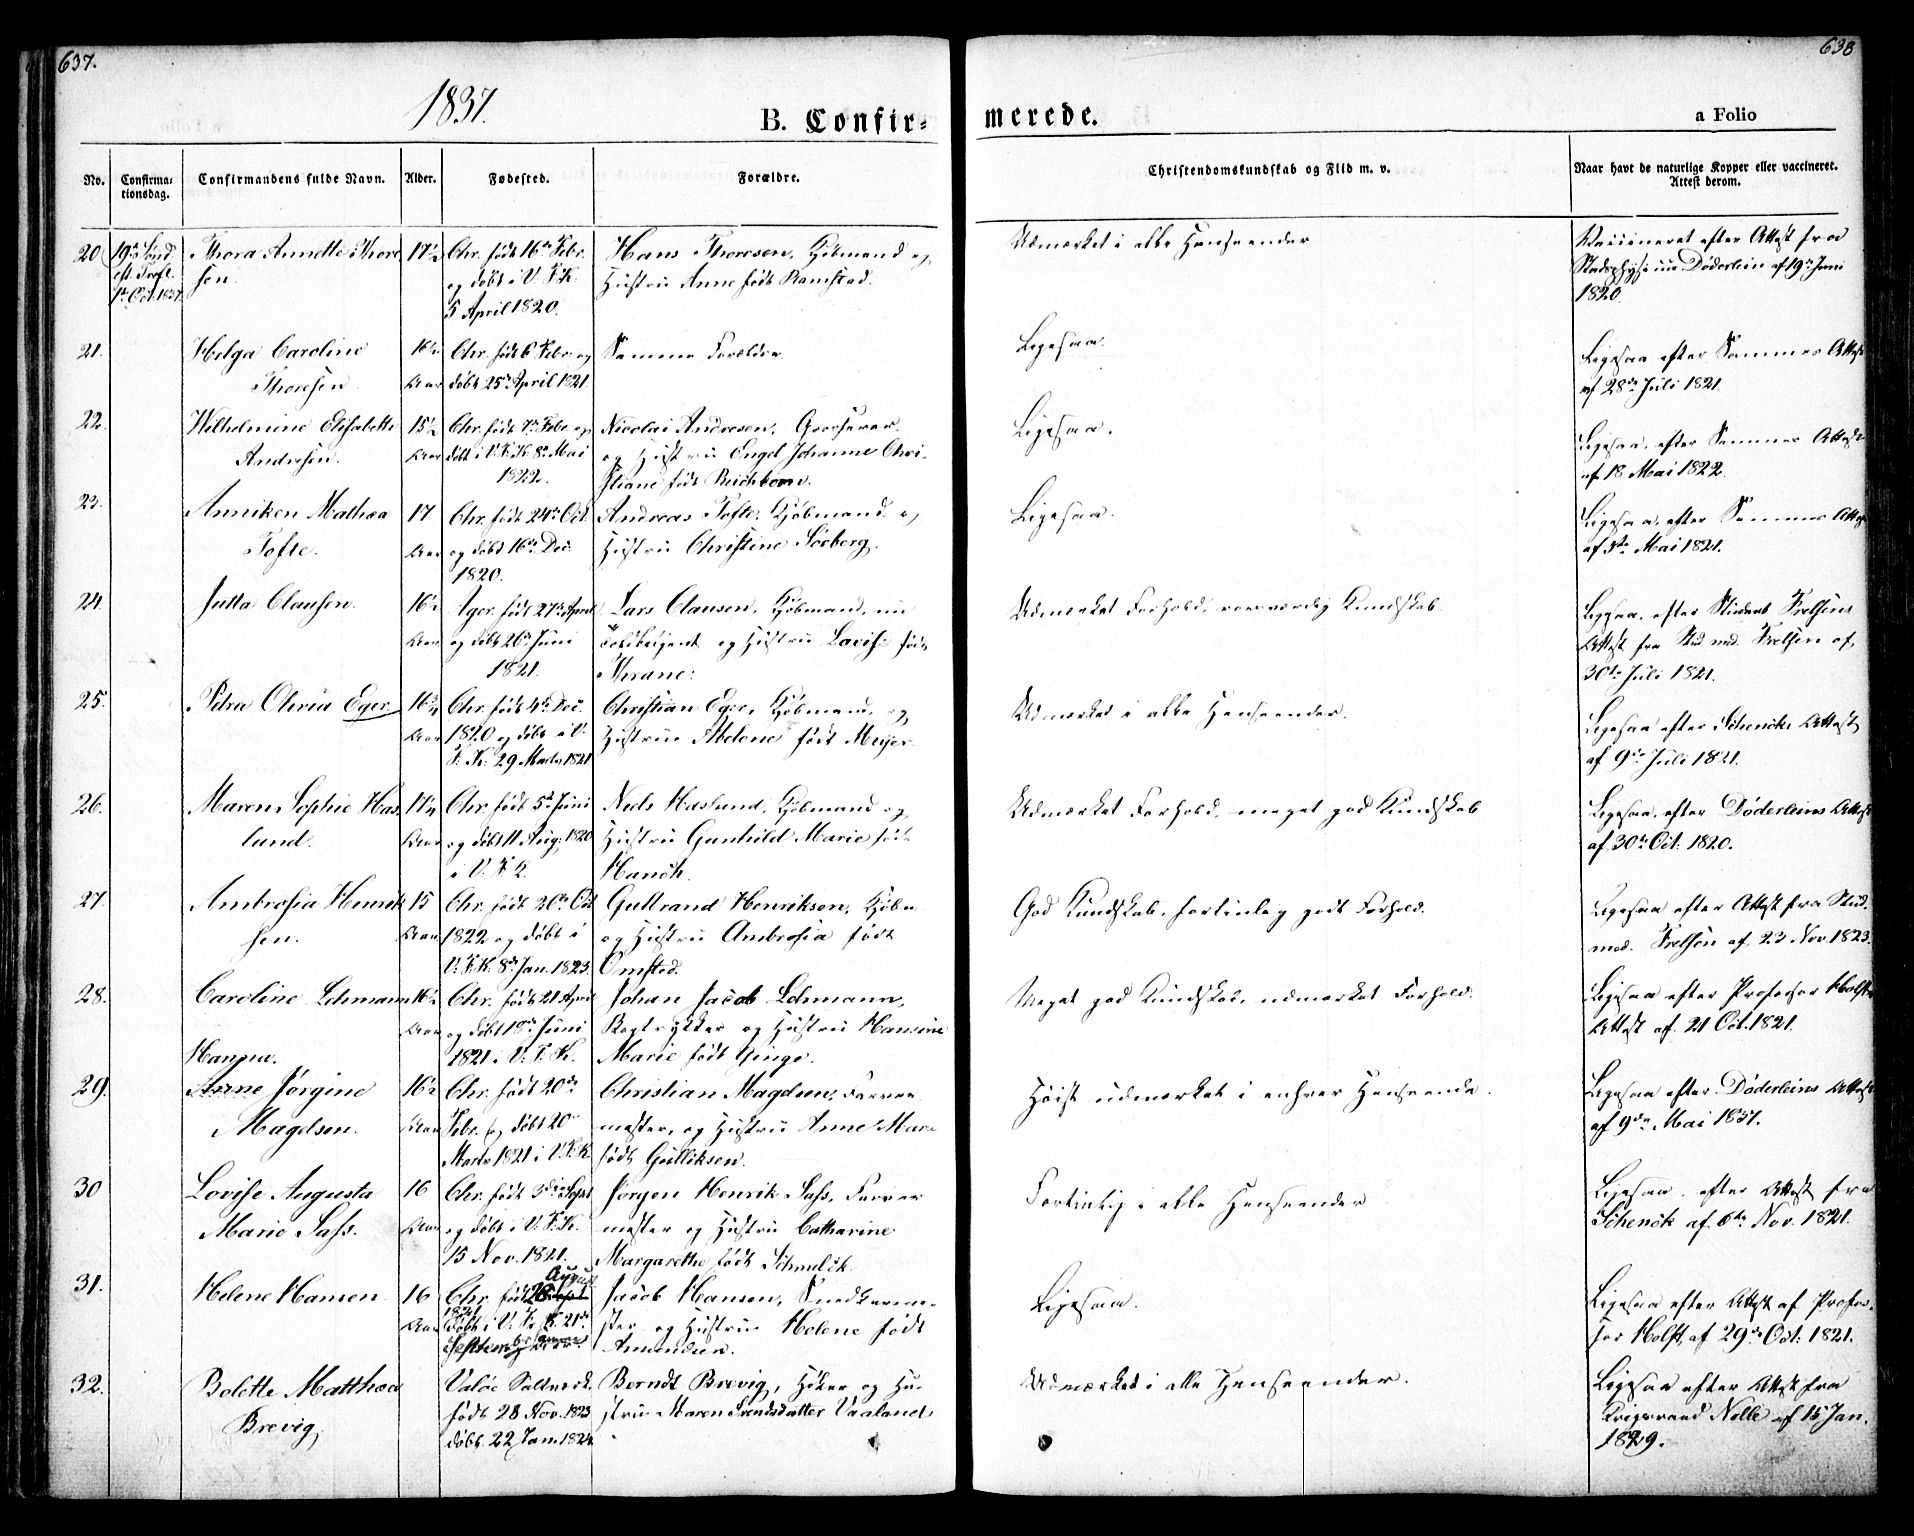 637.
638
1837.
B. Confir-
merede.
a Folio
No.
Confirma-
tionsdag.
Confirmandens fulde Navn.
Alder.
Fødested.
Forældre.
Christendomskundskab og Flid m. v.
Naar havt de naturlige Kopper eller vaccineret.
Attest derom.
20
19de Sønd.
eft Trefl.
1ste Oct. 1837.
Thora Annette Thore
sen.
17½
Chr. født 16de Febr.
og døbt i V. F. K.
5 April 1820.
Hans Thoresen, Kjøbmand og
Hustru Anne født Ramstad.
Udmærket i alle Henseender
Vaccineret efter Attest fra
Stadsphysicus Døderlein af 19de Juni
1820.
21.
Helga Caroline
Thoresen
16½
Aar
Chr. født 6 Febr. og
døbt 25de April 1821.
Samme Forældre
Ligesaa.
Ligesaa efter Sammes Attest
af 28de Juli 1821.
22.
Wilhelmine Elisabette
Andresen.
15½
Aar
Chr. født 7de Febr. og
døbt i V. F. K. 8de Mai
1822.
Nicolai Andresen, Grosserer
og Hustru Engel Johanne Chri-
stiane født Reichborn.
Ligesaa.
Ligesaa, efter Sammes Attest
af 18 Mai 1822.
23.
Anniken Mathea
Tofte.
17
Aar
Chr. født 24de Oct.
og døbt 16de Dec.
1820.
Andreas Tofte, Kjøbmand og
Hustru Christine Soeberg.
Ligesaa.
Ligesaa, efter Sammes Attest
af 5te Mai 1821.
24.
Jutta Clausen.
16½
Aar
Ager. født 27de April
og døbt 26de Juni
1821.
Lars Clausen, Kjøbmand, nu
og Hustru Lovise født
Thrane.
Udmærket Forhold, roesværdig Kundskab.
Ligesaa, efter Student Frelsens
Attest fra Stud med. Frelsen af
30te Juli 1821.
25.
Petra Olivia Eger
16¾
Aar
Chr. født 4de Dec.
1820 og døbt i V.
F. K. 29 Marts 1821
Christian Eger, Kjøbmand, og
Hustru Abelone født Meyer.
Udmærket i alle Henseender.
Ligesaa efter Schencks Attest
af 9de Juli 1821.
26.
Maren Sophie Has
lund.
17¼
Aar
Chr. født 5te Juni
og døbt 11 Aug: 1820
i V. F. K.
Niels Haslund, Kjøbmand og
Hustru Gunhild Marie født
Hanch.
Udmærket Forhold, meget god Kundskab
Ligesaa, efter Døderleins Attest
af 30te Oct. 1820.
27.
Ambrosia Henrik
sen.
15
Aar
Chr. født 20de Oct
1822 og døbt i
V. F. K. 8de Jan. 1823.
Gulbrand Henriksen, Kjøbm.
og Hustru Ambrosia født
Omsted.
God Kundskab, fortrinlig godt Forhold.
Ligesaa efter Attest fra Stud.
med. Frelsen af 23 Nov. 1823.
28.
Caroline Lehmann
16½
Aar
Chr. født 21 April
og døbt 19de Juni
1821 i V. F. K.
Johan Jacob Lehmann,
Bogtrykker og Hustru Hansine
Marie født Ginge.
Meget god Kundskab, udmærket Forhold.
Ligesaa efter Professor Holsts
Attest af 21 Oct. 1821.
29.
Hanna.
Anne Jørgine
Magelsen.
16½
Aar
Chr. født 20de
Febr. og døbt 20de
Marts 1821 i V. F. K.
Christian Magelsen, Farver
mester, og Hustru Anne Mare
født Gulliksen.
Høist udmærket i enhver Henseende.
Ligesaa efter Døderleins Attest
af 9de Mai 1837.
30
Lovise Augusta
Marie Sass.
16
Aar
Chr. født 3die Sept
og døbt i V. F. K.
15 Nov. 1821.
Jørgen Henrik Sass, Farver
mester og Hustru Catharine
Margarethe født Schmelck.
Fortrinlig i alle Henseender
Ligesaa, efter Attest fra
Schenck af 6te Nov. 1821.
31.
Helene Hansen
16
Aar
August
Chr. født 28 Sept
1821
døbt i V. F. K. 21de
September
Jacob Hansen, Snedkerme-
ster og Hustru Helene født
Amundsen.
Ligesaa.
Ligesaa efter Attest af Profes-
sor Holst, af 29de Oct. 1821.
32.
Bolette Matthea
Brevig
Valøe Saltværk.
født 28 Nov. 1823
døbt 22 Jan. 1824
Berndt Brevig, Høker og Hu-
stru Maren Svendsdatter Vaaland
Udmærket i alle Henseender.
Ligesaa efter Attest fra
Krigsraad Nelle af 15 Jan.
1829.